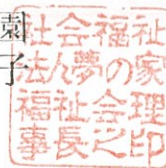 園子
社会福祉
法人夢の家
福祉会理
事長之印